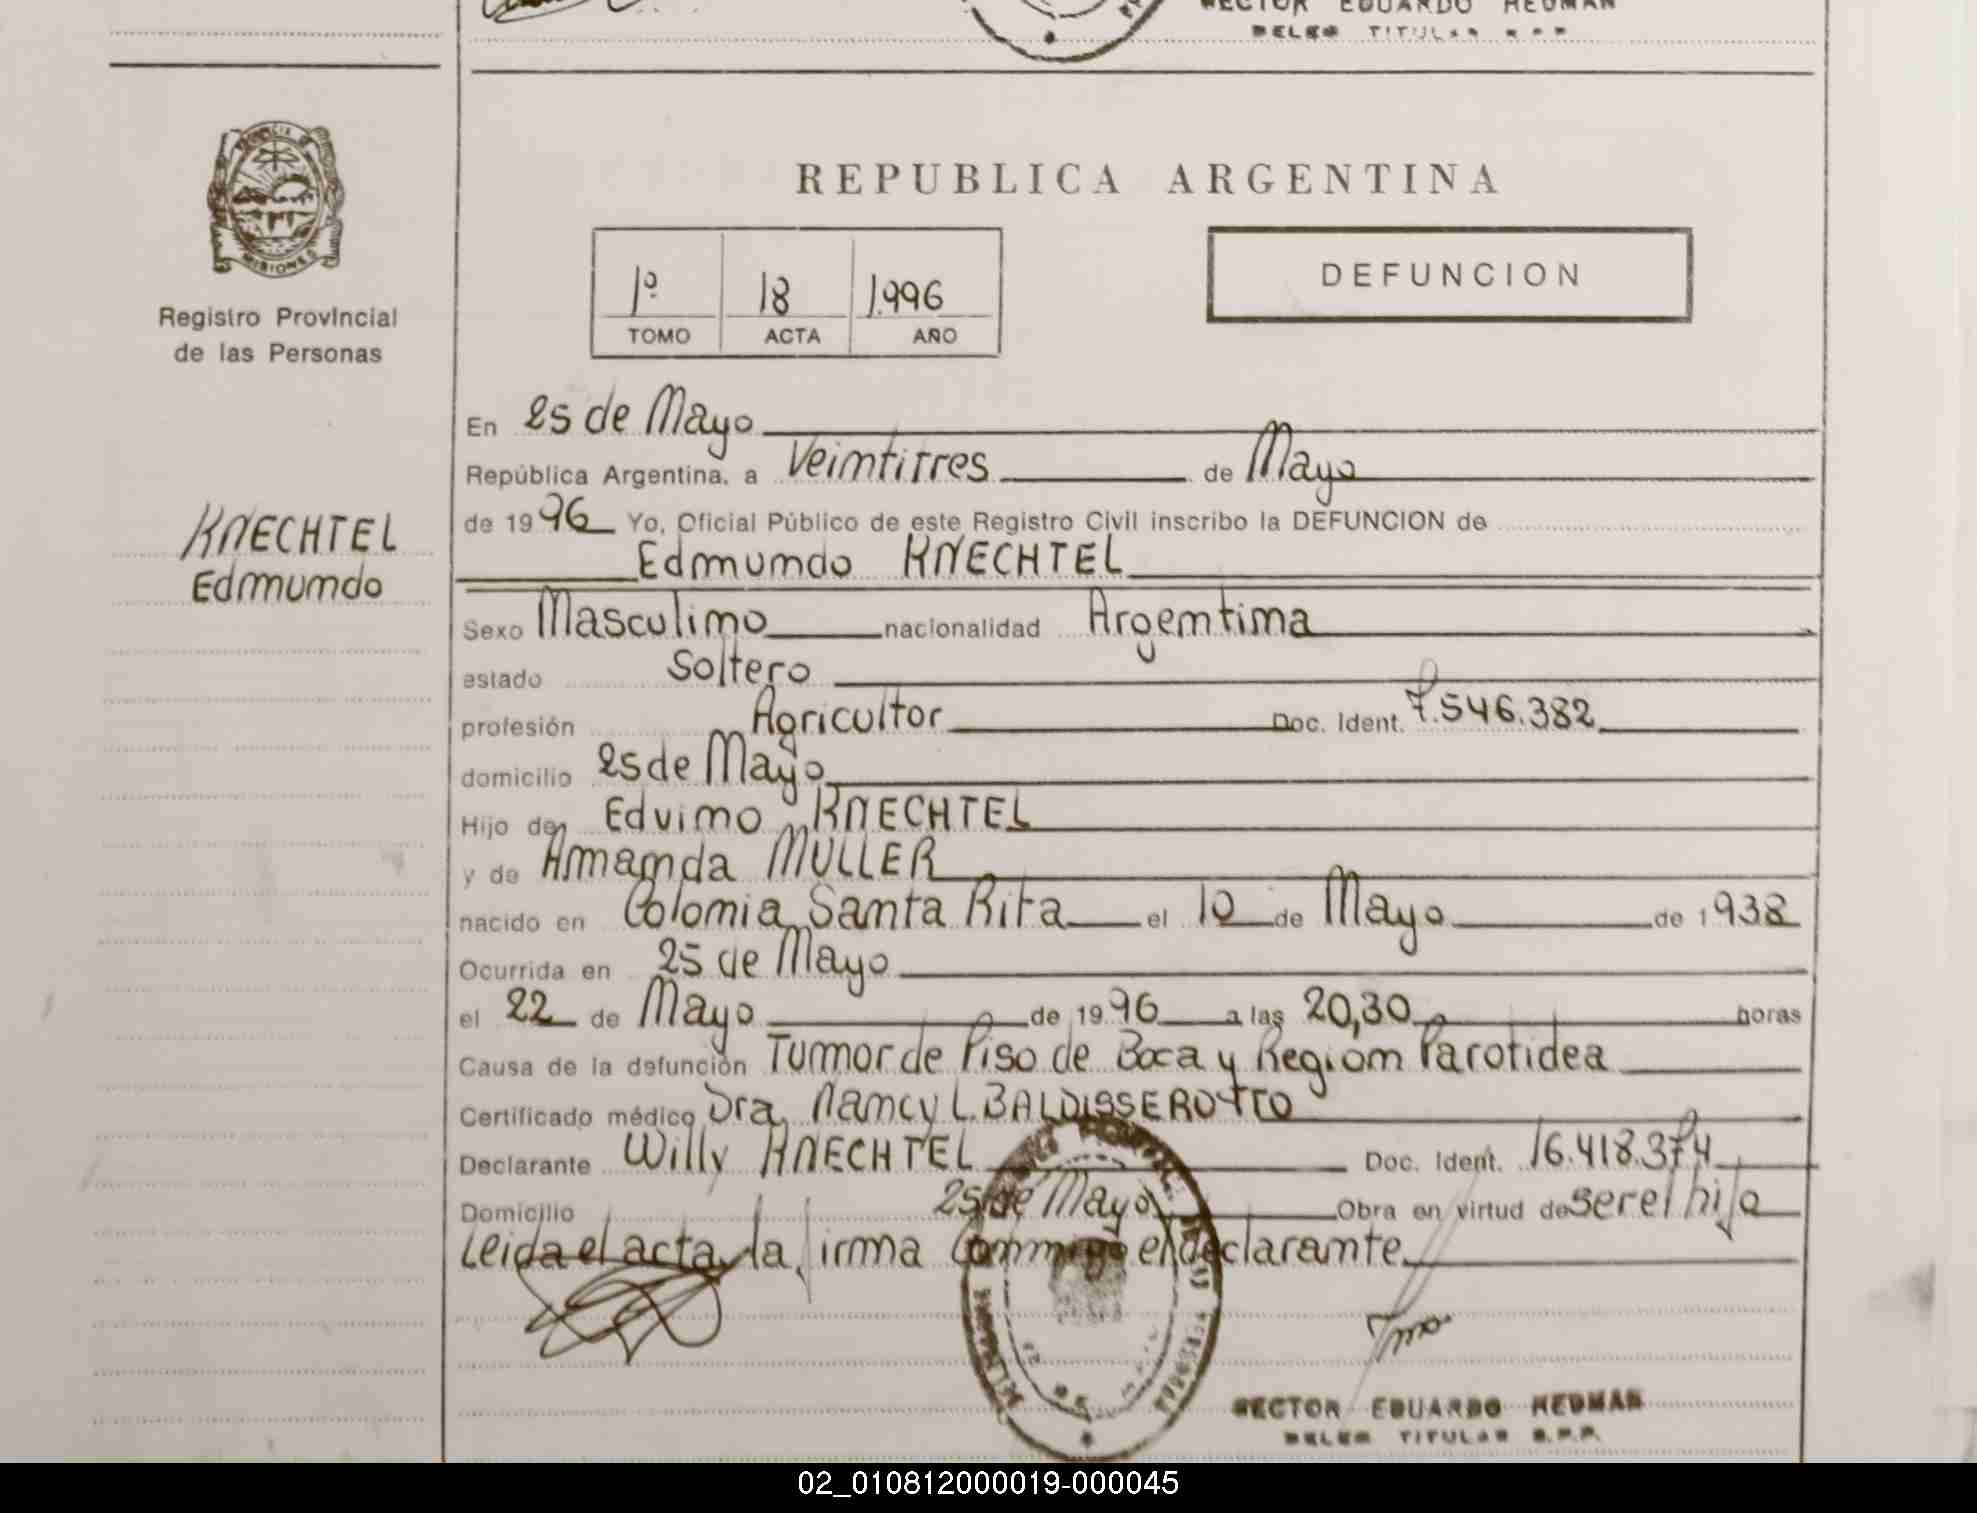 HECTOR EDUARDO HEDMAN
DELEG TITULAR R.P.P.
MISIONES
Registro Provincial
de las Personas
REPUBLICA ARGENTINA
1º 18 1.996
TOMO ACTA AÑO
DEFUNCION
KNECHTEL
Edmundo
En 25 de Mayo
República Argentina, a Veintitres de Mayo
de 1996 Yo, Oficial Público de este Registro Civil inscribo la DEFUNCION de
Edmundo KNECHTEL
Sexo Masculino nacionalidad Argentina
estado Soltero
profesión Agricultor Doc. Ident. 7.546.382
domicilio 25 de Mayo
Hijo de Edvino KNECHTEL
y de Amanda MULLER
nacido en Colonia Santa Rita el 10 de Mayo de 1938
Ocurrida en 25 de Mayo
el 22 de Mayo de 1996 a las 20,30 horas
Causa de la defunción Tumor de Piso de Boca y Region Parotidea
Certificado médico Dra. Nancy L. BALDISSEROTTO
Declarante Willy KNECHTEL Doc. Ident. 16.418.374
Domicilio 25 de Mayo Obra en virtud de ser el hijo
Leida el acta, la firma Conmigo el declarante.
HECTOR EDUARDO HEDMAN
DELEG TITULAR R.P.P.
02_010812000019-000045